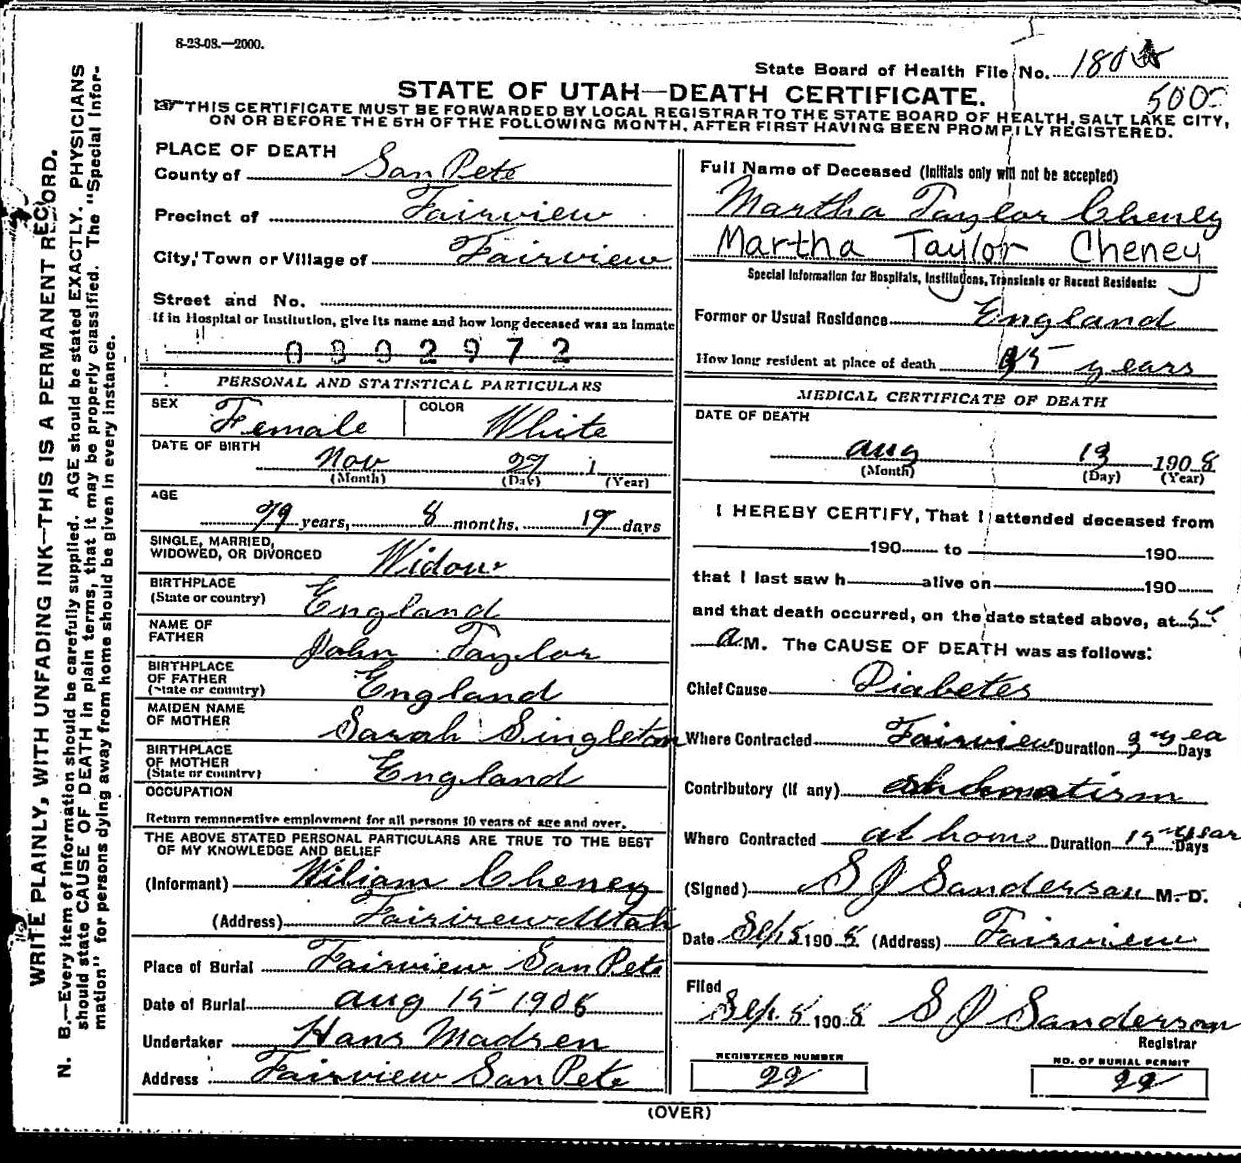 8-23-08.—2000.
State Board of Health File No. 180
500
STATE OF UTAH—DEATH CERTIFICATE.
THIS CERTIFICATE MUST BE FORWARDED BY LOCAL REGISTRAR TO THE STATE BOARD OF HEALTH, SALT LAKE CITY,
ON OR BEFORE THE 5TH OF THE FOLLOWING MONTH, AFTER FIRST HAVING BEEN PROMPTLY REGISTERED.
WRITE PLAINLY, WITH UNFADING INK—THIS IS A PERMANENT RECORD.
N. B.—Every item of information should be carefully supplied. AGE should be stated EXACTLY. PHYSICIANS
should state CAUSE OF DEATH in plain terms, that it may be properly classified. The "Special Infor-
mation" for persons dying away from home should be given in every instance.
PLACE OF DEATH
County of San Pete
Precinct of Fairview
City, Town or Village of Fairview
Street and No.
If in Hospital or Institution, give its name and how long deceased was an inmate
0802972
PERSONAL AND STATISTICAL PARTICULARS
SEX Female COLOR White
DATE OF BIRTH
Nov 27 1
(Month) (Day) (Year)
AGE
79 years, 8 months. 17 days
SINGLE, MARRIED,
WIDOWED, OR DIVORCED Widow
BIRTHPLACE
(State or country) England
NAME OF
FATHER John Taylor
BIRTHPLACE
OF FATHER
(State or country) England
MAIDEN NAME
OF MOTHER Sarah Singleton
BIRTHPLACE
OF MOTHER
(State or country) England
OCCUPATION
Return remunerative employment for all persons 10 years of age and over.
THE ABOVE STATED PERSONAL PARTICULARS ARE TRUE TO THE BEST
OF MY KNOWLEDGE AND BELIEF
(Informant) Wiliam Cheney
(Address) Fairview Utah
Place of Burial Fairview San Pete
Date of Burial Aug 15 1908
Undertaker Hans Madsen
Address Fairview San Pete
Full Name of Deceased (Initials only will not be accepted)
Martha Taylor Cheney
Martha Taylor Cheney
Special Information for Hospitals, Institutions, Transients or Recent Residents:
Former or Usual Residence England
How long resident at place of death years
MEDICAL CERTIFICATE OF DEATH
DATE OF DEATH
Aug 13 1908
(Month) (Day) (Year)
I HEREBY CERTIFY, That I attended deceased from
190 to 190
that I last saw h alive on 190
and that death occurred, on the date stated above, at
A M. The CAUSE OF DEATH was as follows:
Chief Cause Diabetes
Where Contracted Fairview Duration Days
Contributory (if any)
Where Contracted at home Duration Days
(Signed) S J Sanderson M. D.
Date Sep 5 1908 (Address) Fairview
Filed
Sep. 5 1908 S J Sanderson
Registrar
REGISTERED NUMBER NO. OF BURIAL PERMIT
22 22
(OVER)